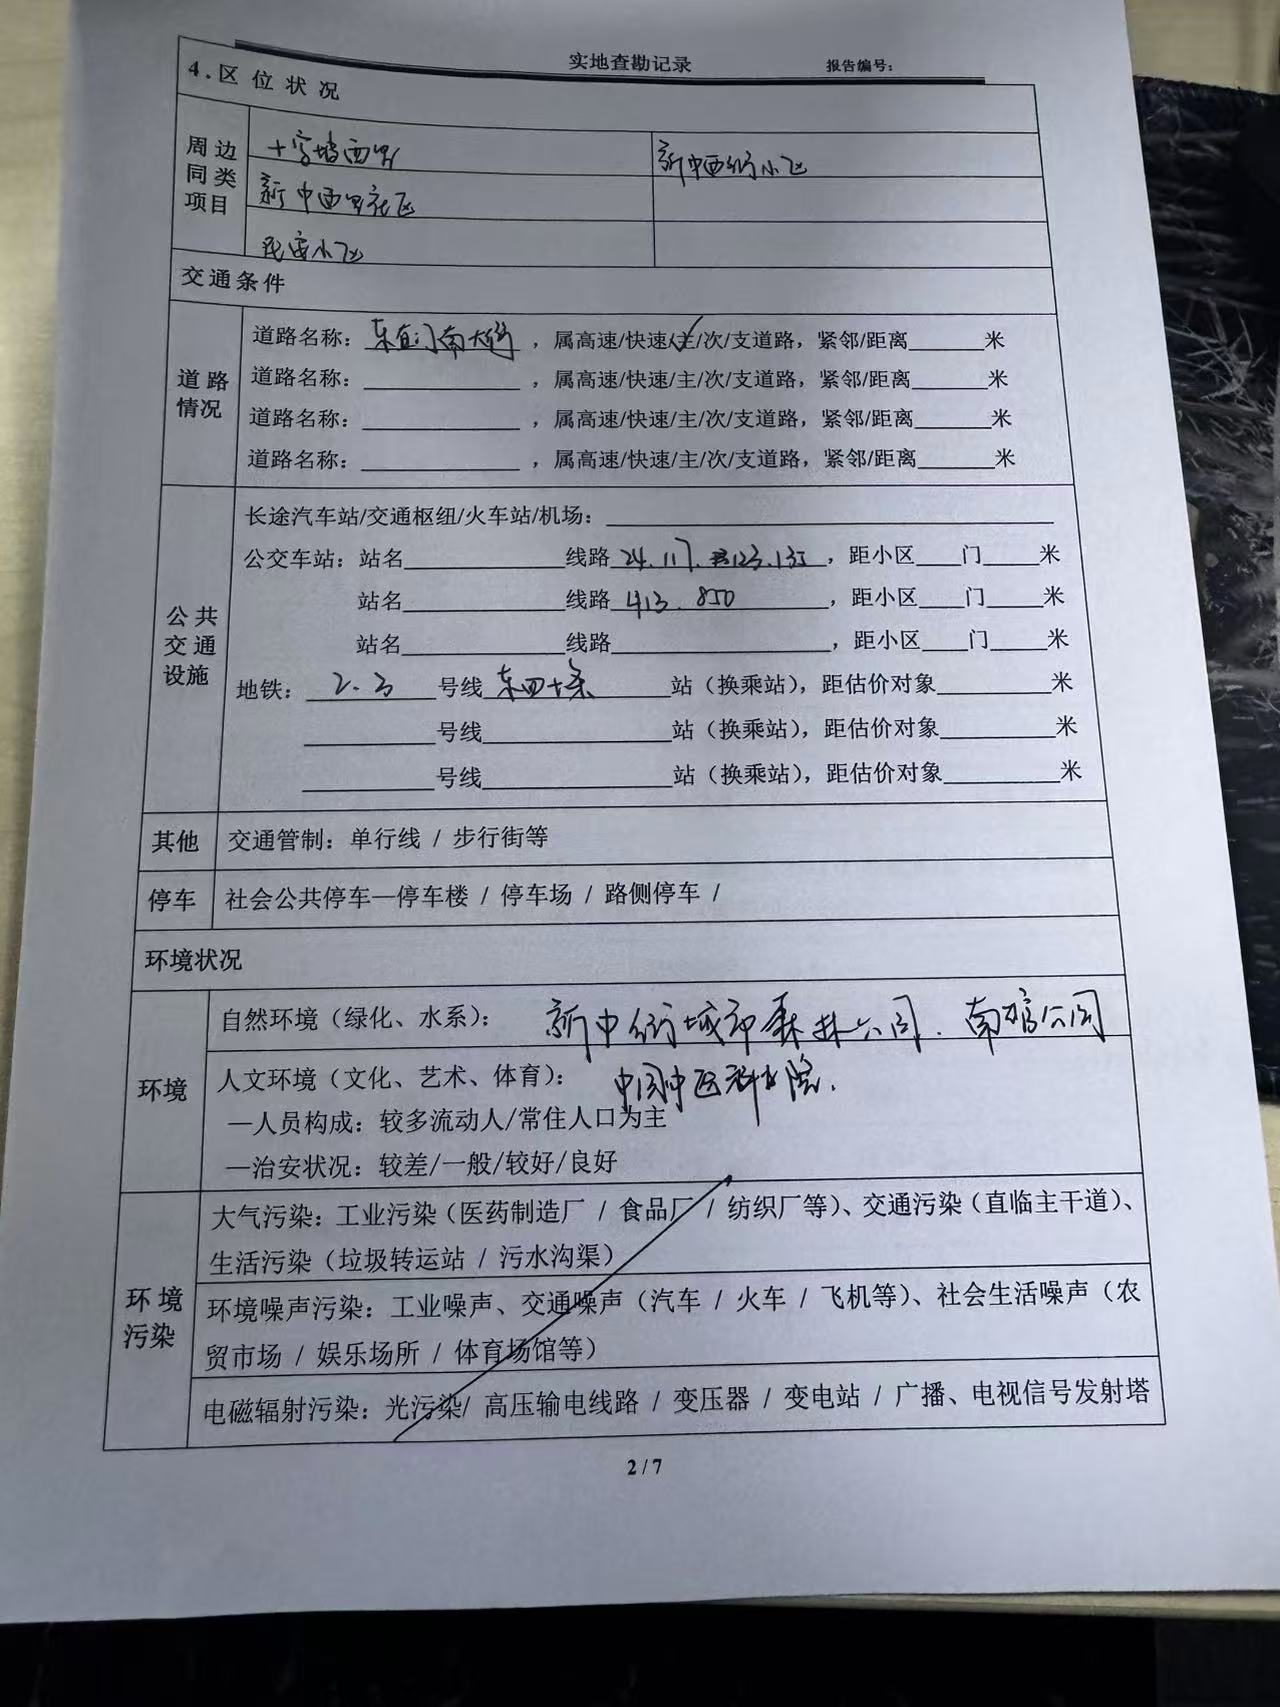 实地查勘记录 报告编号:
4.区位状况
周边同类项目 十字坡西里 新中西街小区
新中西里社区
民安小区
交通条件
道路情况
道路名称: 东直门南大街 , 属高速/快速/主/次/支道路, 紧邻/距离______米
道路名称: ____________ , 属高速/快速/主/次/支道路, 紧邻/距离______米
道路名称: ____________ , 属高速/快速/主/次/支道路, 紧邻/距离______米
道路名称: ____________ , 属高速/快速/主/次/支道路, 紧邻/距离______米
公共交通设施
长途汽车站/交通枢纽/火车站/机场: ____________
公交车站: 站名____________线路 24.117.123.135 , 距小区___门____米
站名____________线路 413.850 , 距小区___门____米
站名____________线路____________, 距小区___门____米
地铁: 2.3 号线 东四十条 站（换乘站）, 距估价对象________米
________号线____________站（换乘站）, 距估价对象________米
________号线____________站（换乘站）, 距估价对象________米
其他 交通管制: 单行线 / 步行街等
停车 社会公共停车—停车楼 / 停车场 / 路侧停车 /
环境状况
环境
自然环境（绿化、水系）: 新中街城市森林公园. 南馆公园
人文环境（文化、艺术、体育）: 中国中医科学院.
—人员构成: 较多流动人/常住人口为主
—治安状况: 较差/一般/较好/良好
环境污染
大气污染: 工业污染（医药制造厂 / 食品厂 / 纺织厂等）、交通污染（直临主干道）、
生活污染（垃圾转运站 / 污水沟渠）
环境噪声污染: 工业噪声、交通噪声（汽车 / 火车 / 飞机等）、社会生活噪声（农
贸市场 / 娱乐场所 / 体育场馆等）
电磁辐射污染: 光污染/ 高压输电线路 / 变压器 / 变电站 / 广播、电视信号发射塔
2 / 7